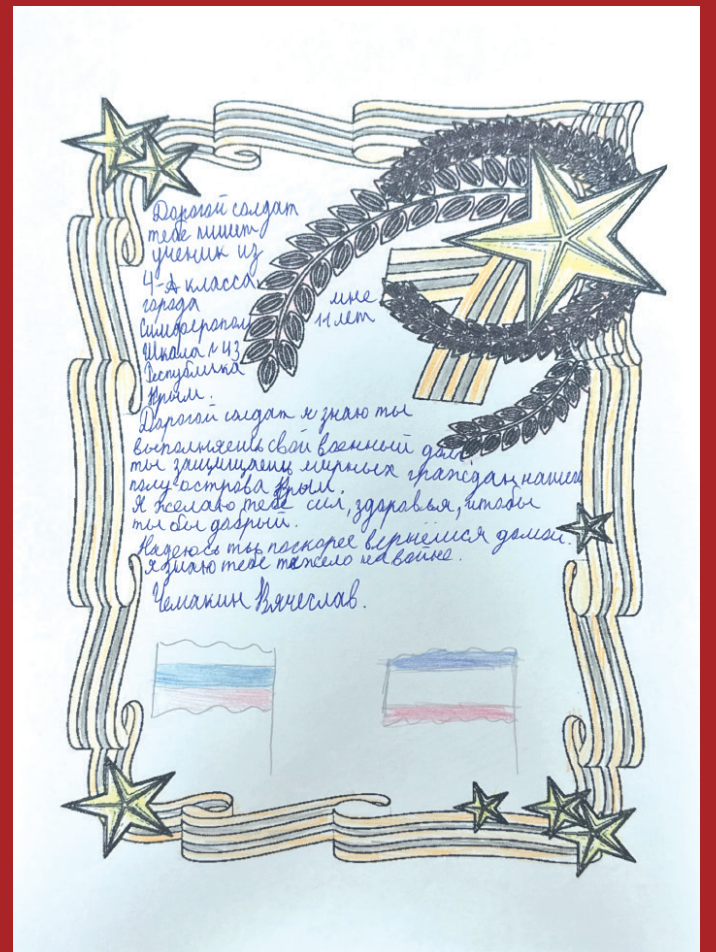 Дорогой солдат
тебе пишет
ученик из
4-А класса
города
Симферополь
Школа № 43
Республика
Крым.
мне
11 лет
Дорогой солдат я знаю ты
выполняешь свой военный долг
ты защищаещь мирных граждан нашего
полу острова Крым.
Я желаю тебе сил, здоровья, чтобы
ты бы добрый.
Надеюсь ты поскорее вернёшся домой.
Я знаю тебе тяжело на войне.
Чемакин Вячеслав.